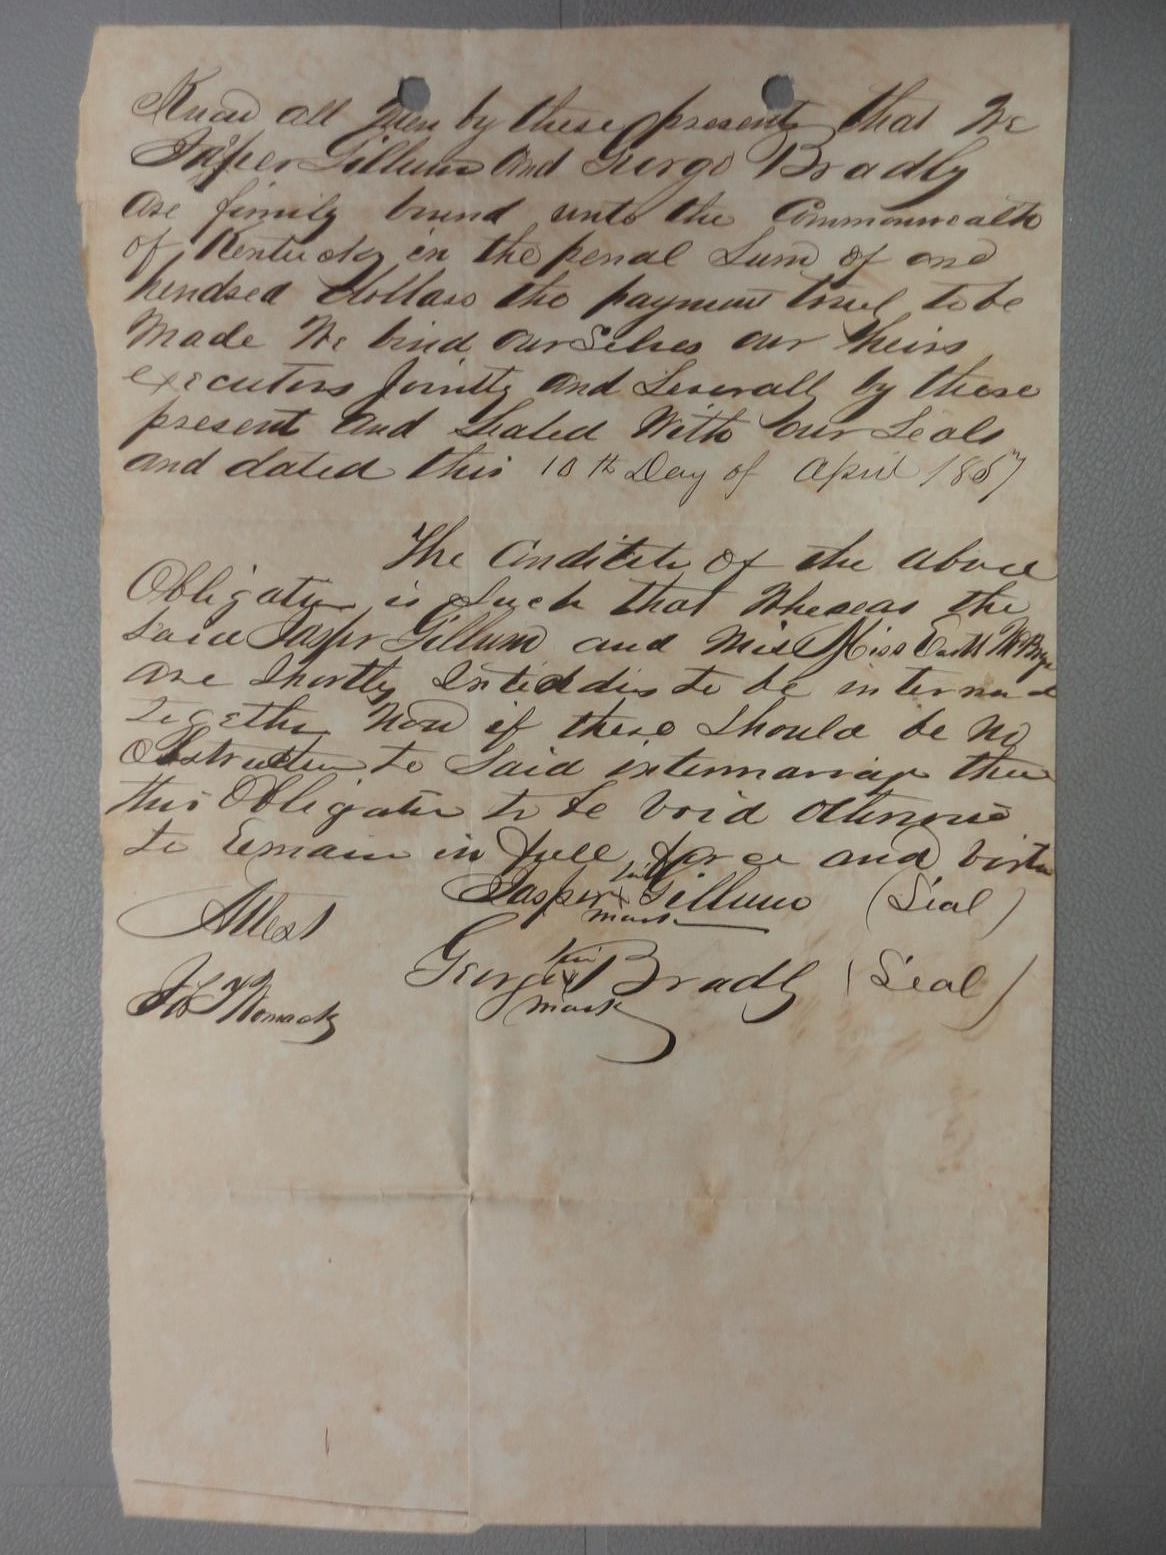 Know all Men by these presents that We
Jasper Gillum and George Bradly
are firmly bound unto the Commonwealth
of Kentucky in the penal Sum of one
hundred dollars the payment to be
Made We bind ourselves our heirs
executors Jointly and Severally by these
present and Sealed With our Seals
and dated this 10th Day of April 1867
The Condition of the above
Obligation is Such that Whereas the
Said Jasper Gillum and Miss
are Shortly to be
together Now if there Should be No
Obstruction to Said intermarriage then
this Obligation to be Void otherwise
to Remain in full force and virtue
Jasper his x mark Gillum (Seal)
Attest
George his x mark Bradly (Seal)
Womack